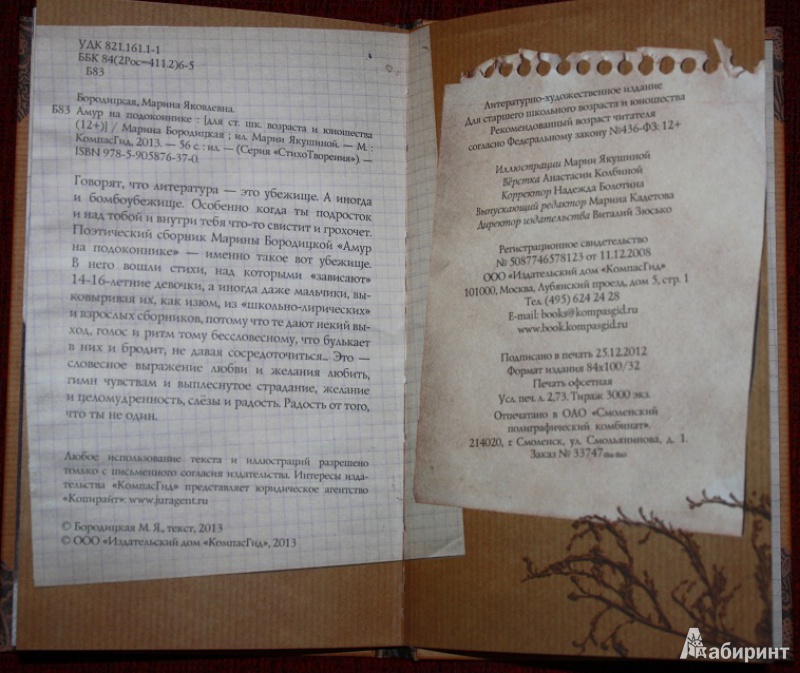 УДК 821.161.1-1
ББК 84(2Рос=411.2)6-5
Б83
Бородицкая, Марина Яковлевна.
Б83 Амур на подоконнике : [для ст. шк. возраста и юношества
(12+)] / Марина Бородицкая ; ил. Марии Якушиной. — М. :
КомпасГид, 2013. — 56 с. : ил. — (Серия «СтихоТворения»). —
ISBN 978-5-905876-37-0.
Говорят, что литература — это убежище. А иногда
и бомбоубежище. Особенно когда ты подросток
и над тобой и внутри тебя что-то свистит и грохочет.
Поэтический сборник Марины Бородицкой «Амур
на подоконнике» — именно такое вот убежище.
В него вошли стихи, над которыми «зависают»
14-16-летние девочки, а иногда даже мальчики, вы-
ковыривая их, как изюм, из «школьно-лирических»
и взрослых сборников, потому что те дают некий вы-
ход, голос и ритм тому бессловесному, что булькает
в них и бродит, не давая сосредоточиться... Это —
словесное выражение любви и желания любить,
гимн чувствам и выплеснутое страдание, желание
и целомудренность, слёзы и радость. Радость от того,
что ты не один.
Любое использование текста и иллюстраций разрешено
только с письменного согласия издательства. Интересы изда-
тельства «КомпасГид» представляет юридическое агентство
«Копирайт»: www.juragent.ru
© Бородицкая М. Я., текст, 2013
© ООО «Издательский дом «КомпасГид», 2013
Литературно-художественное издание
Для старшего школьного возраста и юношества
Рекомендованный возраст читателя
согласно Федеральному закону №436-ФЗ: 12+
Иллюстрации Марии Якушиной
Вёрстка Анастасии Колбиной
Корректор Надежда Болотина
Выпускающий редактор Марина Кадетова
Директор издательства Виталий Зюсько
Регистрационное свидетельство
№ 5087746578123 от 11.12.2008
ООО «Издательский дом «КомпасГид»
101000, Москва, Лубянский проезд, дом 5, стр. 1
Тел. (495) 624 24 28
E-mail: books@kompasgid.ru
www.book.kompasgid.ru
Подписано в печать 25.12.2012
Формат издания 84х100/32
Печать офсетная
Усл. печ. л. 2,73. Тираж 3000 экз.
Отпечатано в ОАО «Смоленский
полиграфический комбинат».
214020, г. Смоленск, ул. Смольянинова, д. 1.
Заказ № 33747
Лабиринт